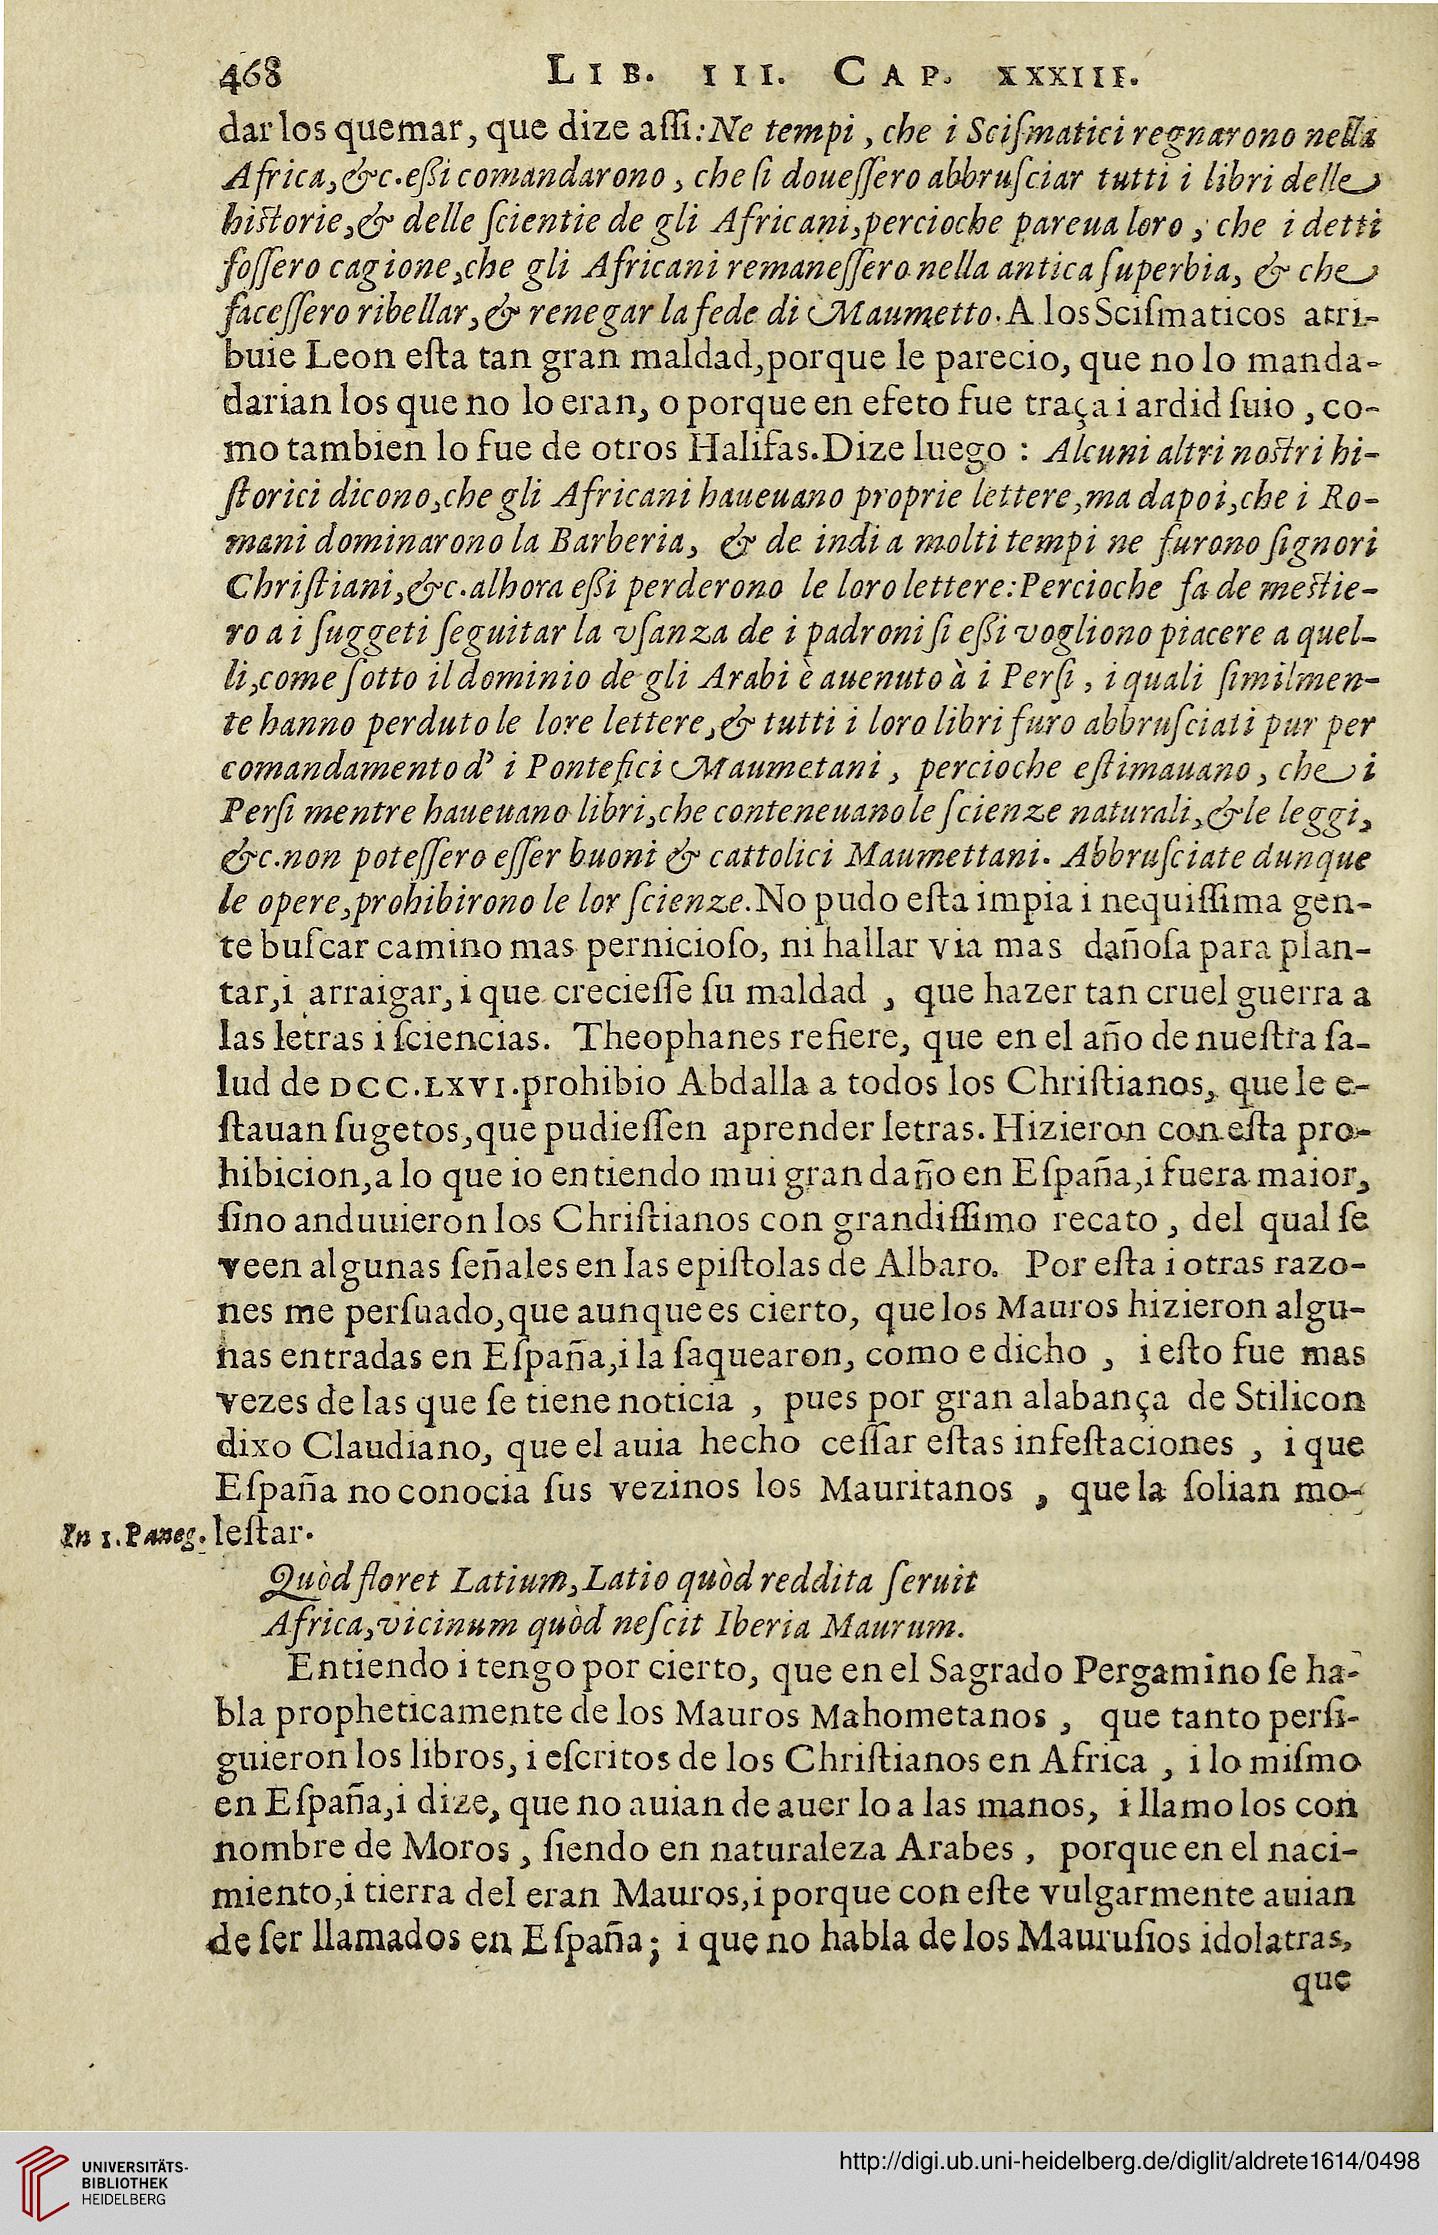 468 LIB. III. CAP. XXXIII.
dar los quemar, que dize aſſi: Ne tempi, che i Sciſmatici regnarono nella
Africa, &c. eßi comandarono, che ſi doueſſero abbruſciar tutti i libri delle
hiſtorie, & delle ſcientie de gli Africani, percioche pareua loro, che i detti
foſſero cagione, che gli Africani remaneſſero nella antica ſuperbia, & che
faceſſero ribellar, & renegar la fede di Maumetto. A los Sciſmaticos atri-
buie Leon eſta tan gran maldad, porque le parecio, que no lo manda-
darian los que no lo eran, o porque en efeto fue traça i ardid ſuio, co-
mo tambien lo fue de otros Halifas. Dize luego: Alcuni altri noſtri hi-
ſtorici dicono, che gli Africani haueuano proprie lettere, ma dapoi, che i Ro-
mani dominarono la Barberia, & de indi a molti tempi ne furono ſignori
Chriſtiani, &c. alhora eßi perderono le loro lettere: Percioche fa de meſtie-
ro a i ſuggeti ſeguitar la vſanza de i padroni ſi eßi vogliono piacere a quel-
li, come ſotto il dominio de gli Arabi è auenuto à i Perſi, i quali ſimilmen-
te hanno perduto le lore lettere, & tutti i loro libri furo abbruſciati pur per
comandamento d' i Pontefici Maumetani, percioche eſtimauano, che i
Perſi mentre haueuano libri, che conteneuano le ſcienze naturali, & le leggi,
&c. non poteſſero eſſer buoni & cattolici Maumettani. Abbruſciate dunque
le opere, prohibirono le lor ſcienze. No pudo eſta impia i nequiſſima gen-
te buſcar camino mas pernicioſo, ni hallar via mas dañoſa para plan-
tar, i arraigar, i que crecieſſe ſu maldad, que hazer tan cruel guerra a
las letras i ſciencias. Theophanes refiere, que en el año de nueſtra ſa-
lud de DCC.LXVI. prohibio Abdalla a todos los Chriſtianos, que le e-
ſtauan ſugetos, que pudieſſen aprender letras. Hizieron con eſta pro-
hibicion, a lo que io entiendo mui gran daño en Eſpaña, i fuera maior,
ſino anduuieron los Chriſtianos con grandiſſimo recato, del qual ſe
veen algunas ſeñales en las epiſtolas de Albaro. Por eſta i otras razo-
nes me perſuado, que aunque es cierto, que los Mauros hizieron algu-
nas entradas en Eſpaña, i la ſaquearon, como e dicho, i eſto fue mas
vezes de las que ſe tiene noticia, pues por gran alabança de Stilicon
dixo Claudiano, que el auia hecho ceſſar eſtas infeſtaciones, i que
Eſpaña no conocia ſus vezinos los Mauritanos, que la ſolian mo-
In 1. Paneg. leſtar.
Quòd floret Latium, Latio quòd reddita ſeruit
Africa, vicinum quòd neſcit Iberia Maurum.
Entiendo i tengo por cierto, que en el Sagrado Pergamino ſe ha-
bla propheticamente de los Mauros Mahometanos, que tanto perſi-
guieron los libros, i eſcritos de los Chriſtianos en Africa, i lo miſmo
en Eſpaña, i dize, que no auian de auer lo a las manos, i llamo los con
nombre de Moros, ſiendo en naturaleza Arabes, porque en el naci-
miento, i tierra del eran Mauros, i porque con eſte vulgarmente auian
de ſer llamados en Eſpaña; i que no habla de los Mauruſios idolatras,
que
UNIVERSITÄTS-
BIBLIOTHEK
HEIDELBERG
http://digi.ub.uni-heidelberg.de/diglit/aldrete1614/0498